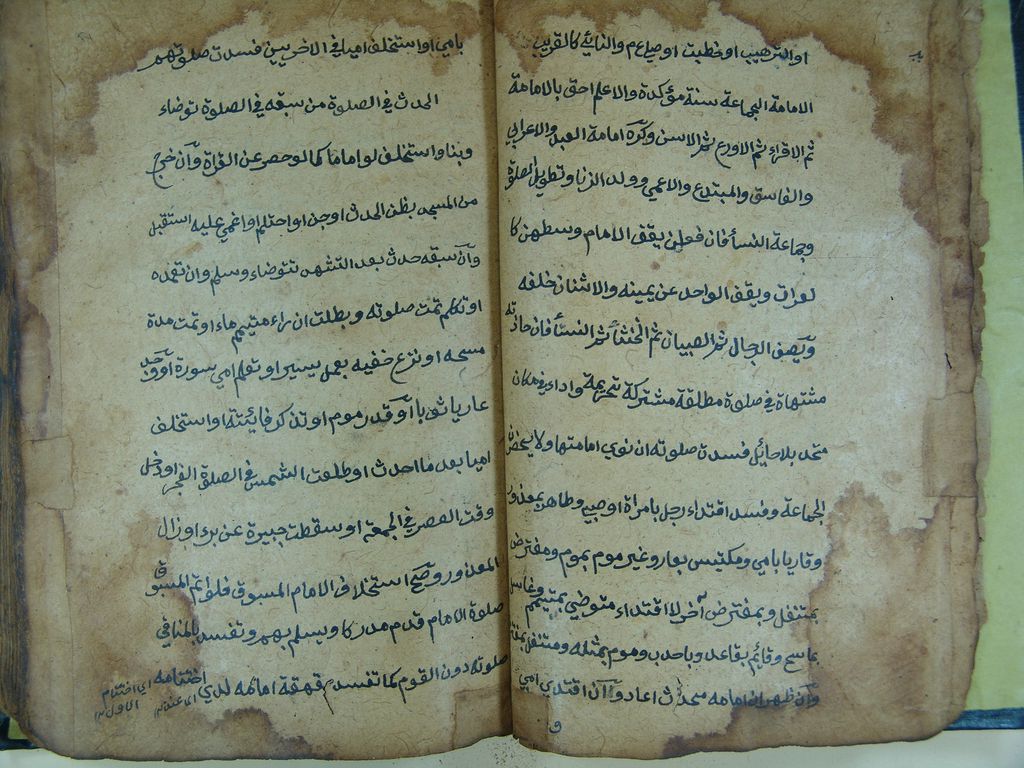 او الترهيب او خطبت او صلي ع م والنائي كالقريب
الامامة الجماعة سنة مؤكدة والاعلم احق بالامامة
ثم الاقراء ثم الاورع ثم الاسن وكره امامة العبد والاعرابي
والفاسق والمبتدع والاعمي وولد الزنا وتطويل الصلوة
وجماعة النسأ فان فعلن يقف الامام وسطهن كا
لعراة ويقف الواحد عن يمينه والاثنان خلفه
ويصف الرجال ثم الصبيان ثم الخنثأ ثم النسأ فان حاذته
مشتهاة في صلوة مطلقة مشتركة تحريمة واداء في مكان
متحد بلا حائل فسدة صلوته ان نوي امامتها ولا يحضرن
الجماعة وفسد اقتداء رجل بامراة او صبي وطاهر بمعذور
وقاريا بامي ومكتيس بعار وغير موم بموم ومفترض
بمتنفل وبمفترض آخر لا اقتداء متوضي بمتيمم وغاسل
بماسح وقائم بقاعد وباحدب وموم بمثله ومتنفل بمفتر
وان ظهر ان امامه محدث اعاد وان اقتدي امي
و
بامي او استخلف اميا في الاخريين فسدت صلوتهم
الحدث في الصلوة من سبقه في الصلوة توضاء
وبنا واستخلف لو اماما كما لو حصر عن القراة وان خرج
من المسجد بظن الحدث او جن او احتلم او اغمي عليه استقبل
وان سبقه حدث بعد التشهد تتوضاء وسلم وان تعمده
او تكلم تمت صلوته وبطلت ان راء متيمم ماء او تمت مدة
مسحه او نزع خفيه بعمل يسير او تعلم امي سورة او وجد
عاريا ثوبا او قدر موم او تذكر فائيتة او استخلف
اميا بعد ما احدث او طلعت الشمس في الصلوة الفجر او دخل
وقت العصر في الجمعه او سقطت جبيرة عن برء او زال
المعذور وصح استخلاف الامام المسبوق فلو اتم المسبوق
صلوة الامام قدم مدركا ويسلم بهم وتفسد بالمنافي
صلوته دون القوم كما تفسد قهقة امامه لدي اختتامه
اي اختتام
الاول
اي عند